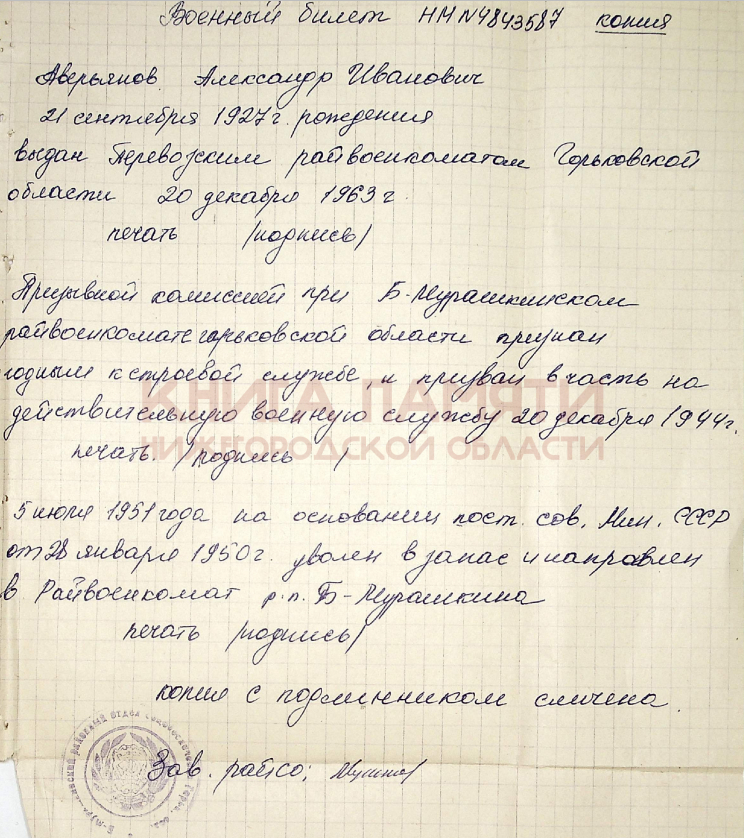 Военный билет НМ N4843587 копия
Аверьянов Александр Иванович
21 сентября 1927 г. рождения
выдан Перевозским райвоенкоматом Горьковской
области 20 декабря 1963 г
печать /подпись/
Призывной комиссией при Б-Мурашкинском
райвоенкомате горьковской области признан
годным к строевой службе, и призван в часть на
КНИГА ПАМЯТИ
действительную военную службу 20 декабря 1944 г.
НИЖЕГОРОДСКОЙ ОБЛАСТИ
печать. /подпись /
5 июля 1951 года на основании пост. сов. Мин. СССР
от 28 января 1950 г. уволен в запас и направлен
в Райвоенкомат р.п. Б-Мурашкина
печать /подпись/
копия с подлинником сличена.
районный отдел
Зав. райсо;